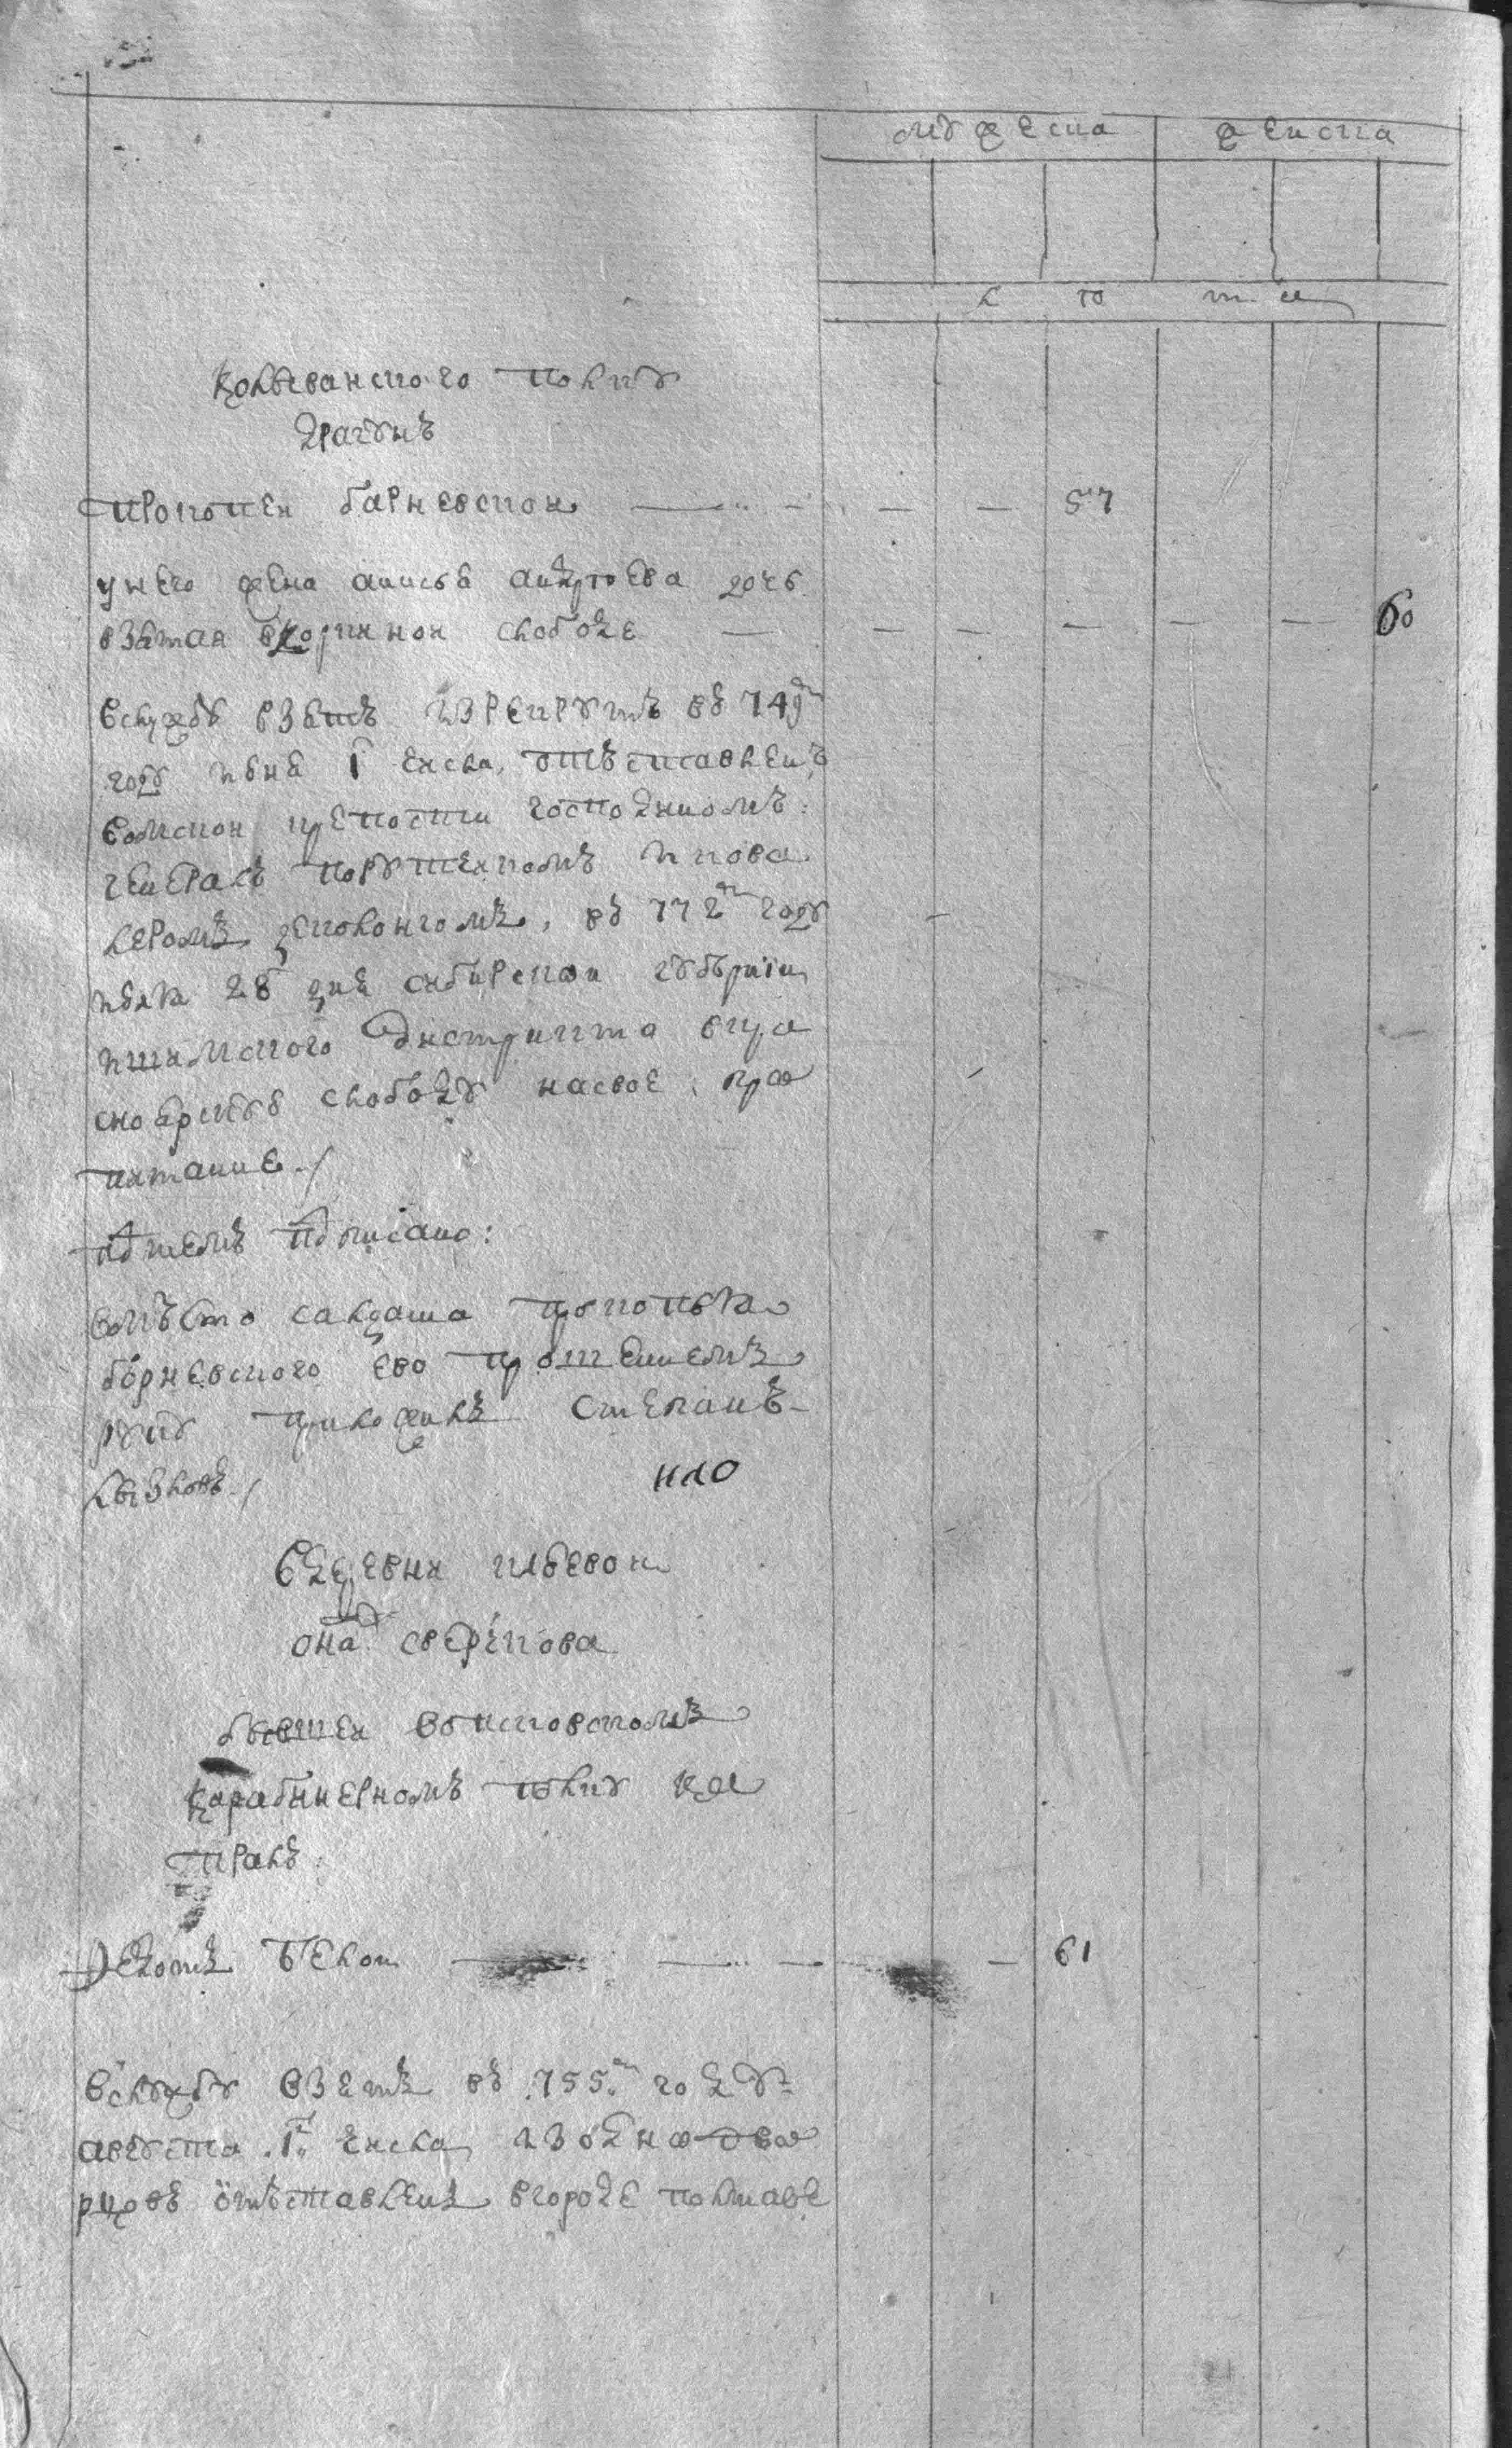 мужеска женска
л ѣ т а
Колыванского полку
драгунъ
Прокопеи барневскои 57
у него жена анисья андреева дочь
взятая вкоринкои слободе 60
Вслужбу взетъ изрекрутъ въ 749м
году июня 1 числа, отъставленъ
вомскои крепости господиномъ
генералъ порутчикомъ и кова
леромъ деколонгомъ, въ 772м году
июля 28 дня сибирскои губернии
ишимского дистрикта вкра
сноярскую слободу насвое про
питание
Патемъ подписано:
вместо салдата прокопья
барневского ево прошениемъ
руку приложилъ степанъ
лызловъ
Вдеревня
она сверикова
бывшеи вопсковскомъ
Карабинерномъ полку ка
пралъ
Федотъ Беков 61
Вслужбу взетъ въ 755м году
августа 1 числа изоднодво
рцовъ отъставленъ вгороде полтаве